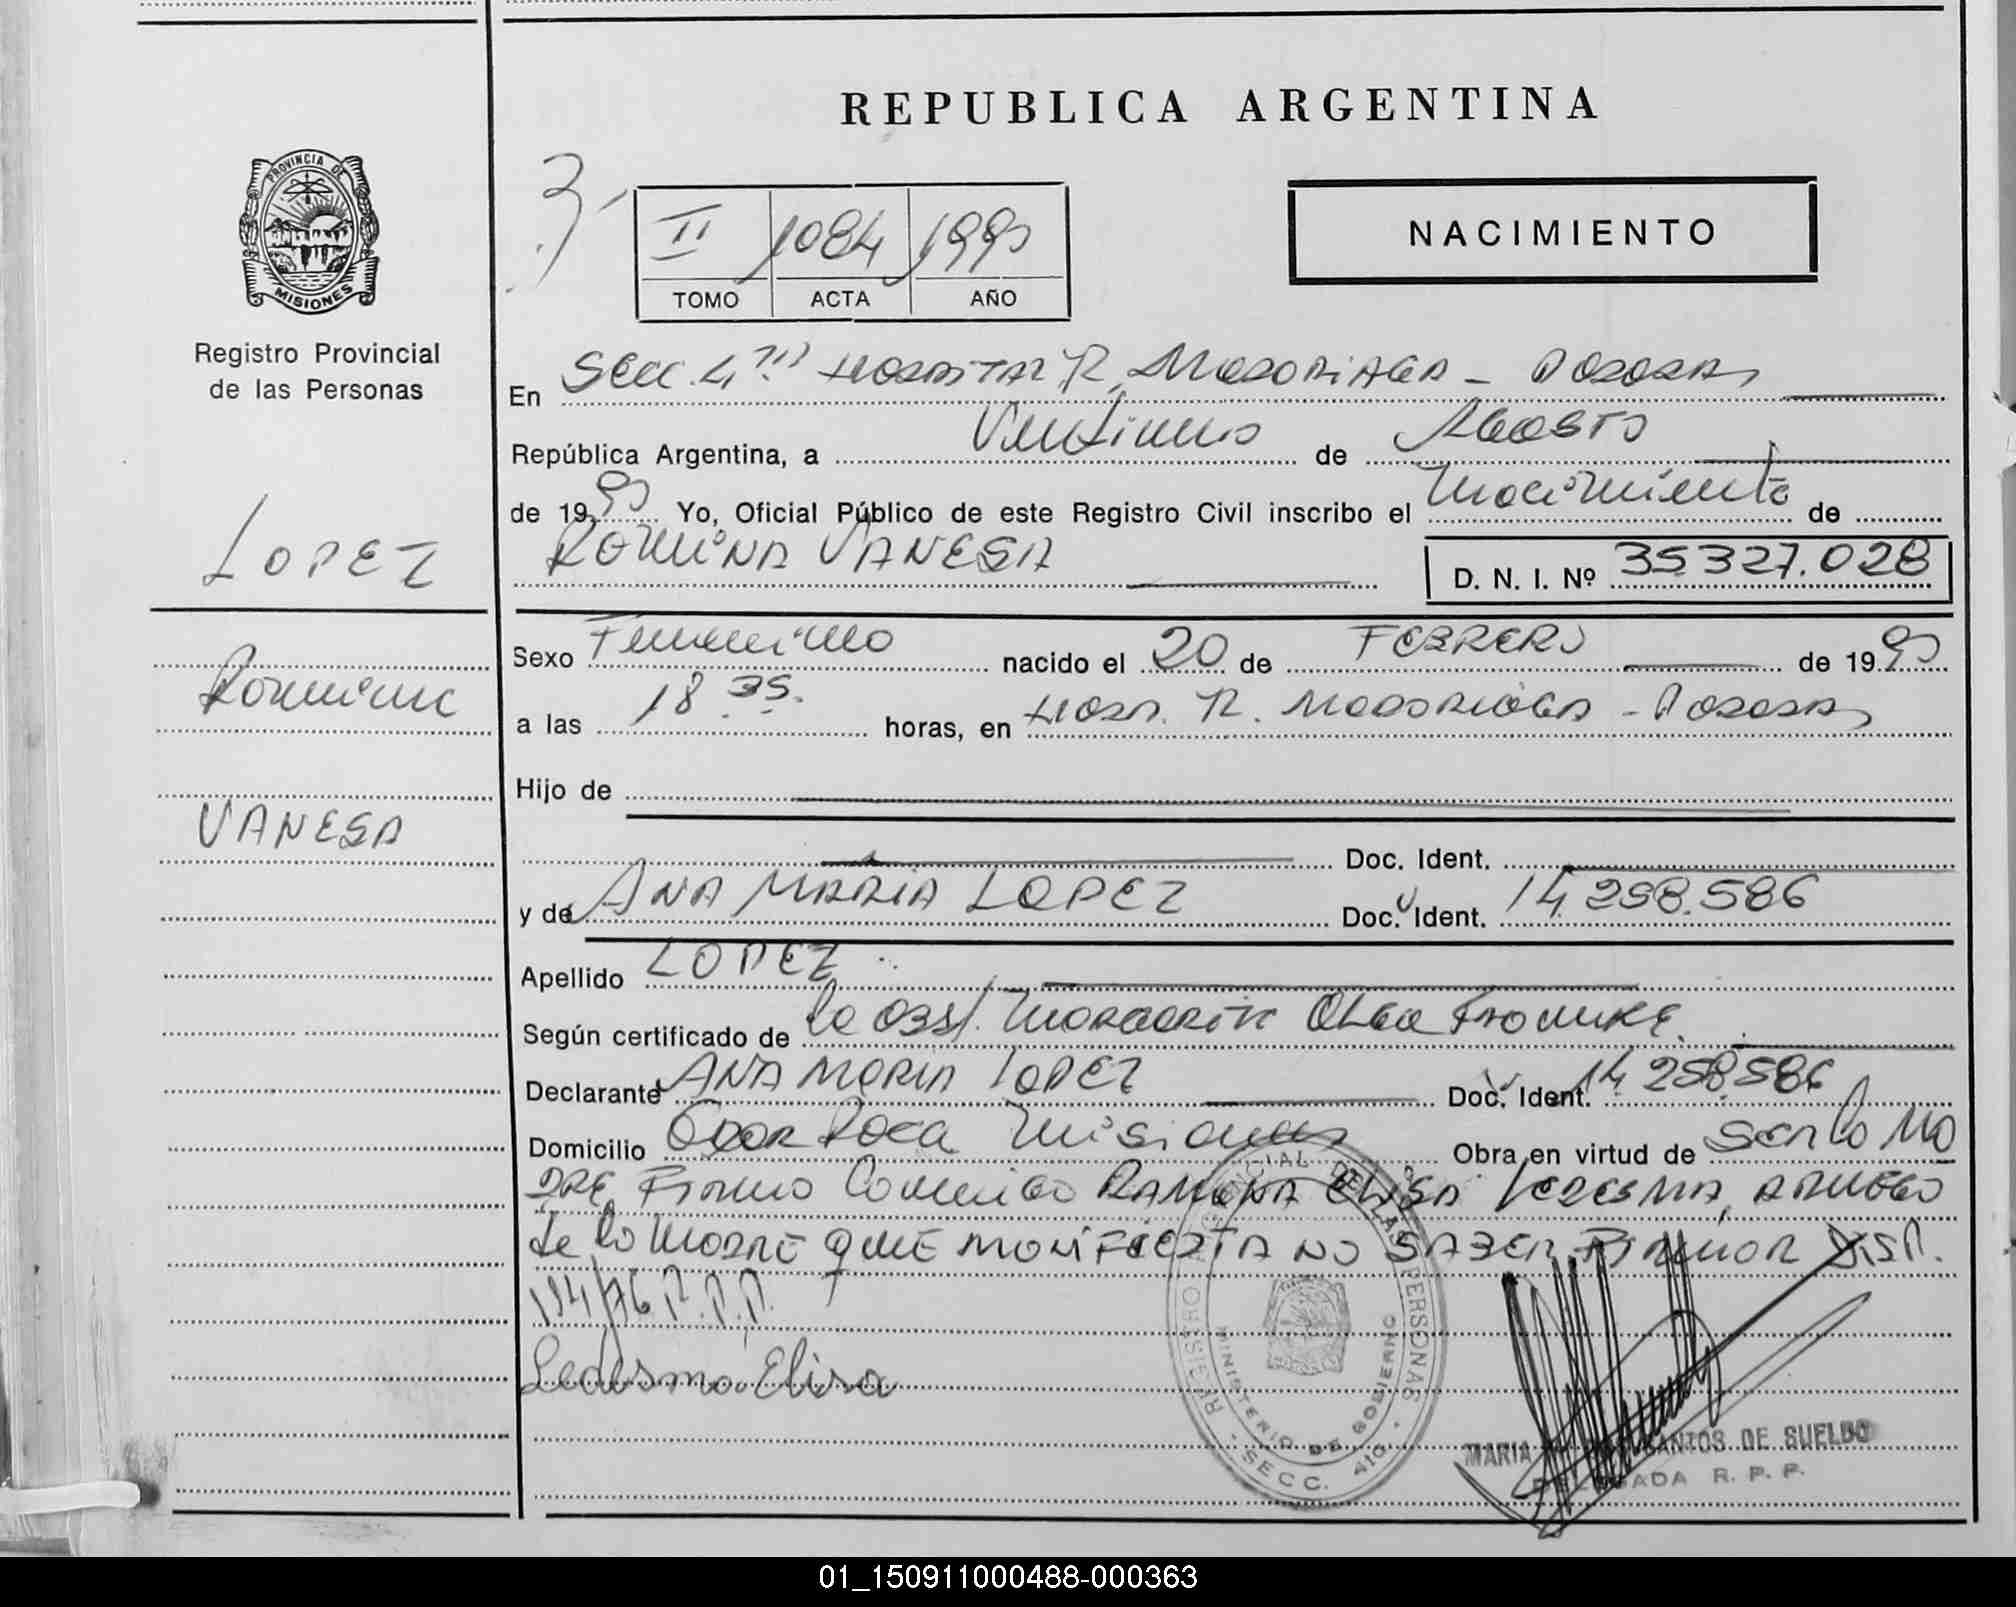 REPUBLICA ARGENTINA
PROVINCIA DE
MISIONES
Registro Provincial
de las Personas
II 1084 1990
TOMO ACTA AÑO
NACIMIENTO
En Secc. 4ta Hospital R. Madariaga - Posadas
República Argentina, a Veintiuno de Agosto
de 1990 Yo, Oficial Público de este Registro Civil inscribo el nacimiento de
LOPEZ
ROMINA VANESA
D. N. I. Nº 35.327.028
Sexo Femenino nacido el 20 de FEBRERO de 1990
Romina
a las 18.35. horas, en Hosp. R. Madariaga - Posadas
Hijo de
VANESA
Doc. Ident.
y de ANA MARIA LOPEZ Doc. Ident. 14.258.586
Apellido LOPEZ
Según certificado de la Obst. Margarita Olga
Declarante ANA MARIA LOPEZ Doc. Ident. 14.258.586
Domicilio Roca Misiones Obra en virtud de ser la ma
dre Firma Conmigo RAMONA ELISA LEDESMA, A RUEGO
de la madre QUE MANIFIESTA NO SABER FIRMAR DISP.
114/76 R.P.P.
Ledesma Elisa
REGISTRO PROVINCIAL DE LAS PERSONAS
MINISTERIO DE GOBIERNO
SECC. 4TA
MARIA SANTOS DE SUELDO
DELEGADA R. P. P.
01_150911000488-000363